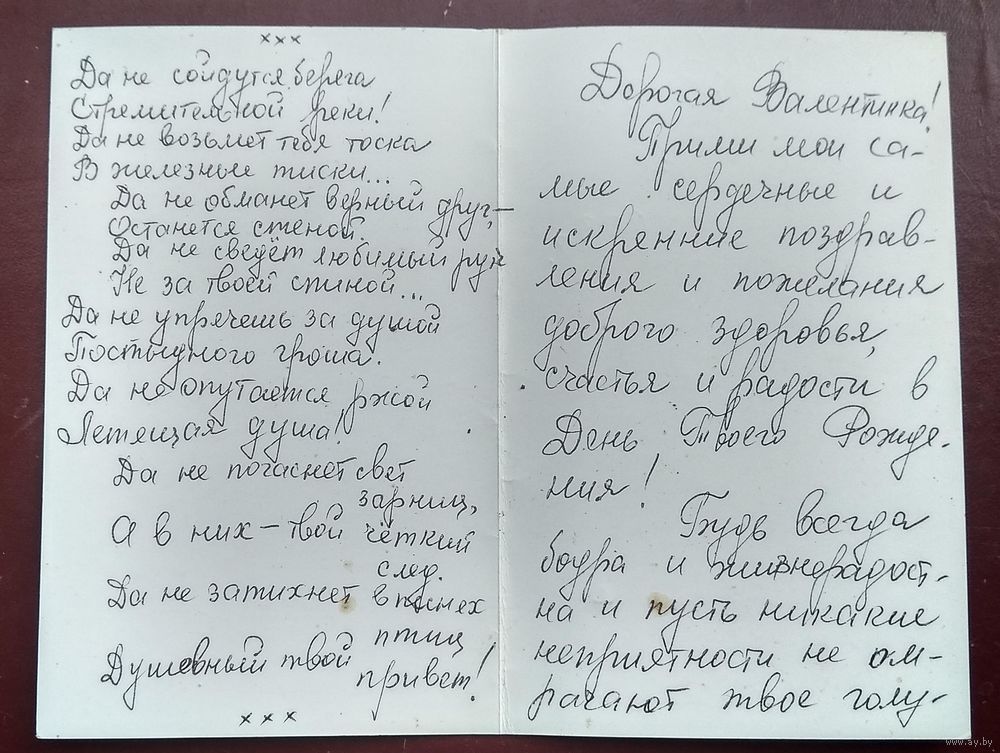 × × ×
Да не сойдутся берега
Стремительной реки!
Да не возьмет тебя тоска
В железные тиски...
Да не обманет верный друг, —
Останется стеной.
Да не сведёт любимый рук
Не за твоей спиной...
Да не упрячешь за душой
Постыдного гроша.
Да не опутается ржой
Летящая душа!
Да не погаснет свет
зарниц,
А в них — твой чёткий
след.
Да не затихнет в песнех
птиц
Душевный твой
привет!
× × ×
Дорогая Валентинка!
Прими мои са-
мые сердечные и
искренние поздрав-
ления и пожелания
доброго здоровья,
счастья и радости в
День Твоего Рожде-
ния!
Будь всегда
бодра и жизнерадост-
на и пусть никакие
неприятности не ом-
рачают твое голу-
www.ay.by